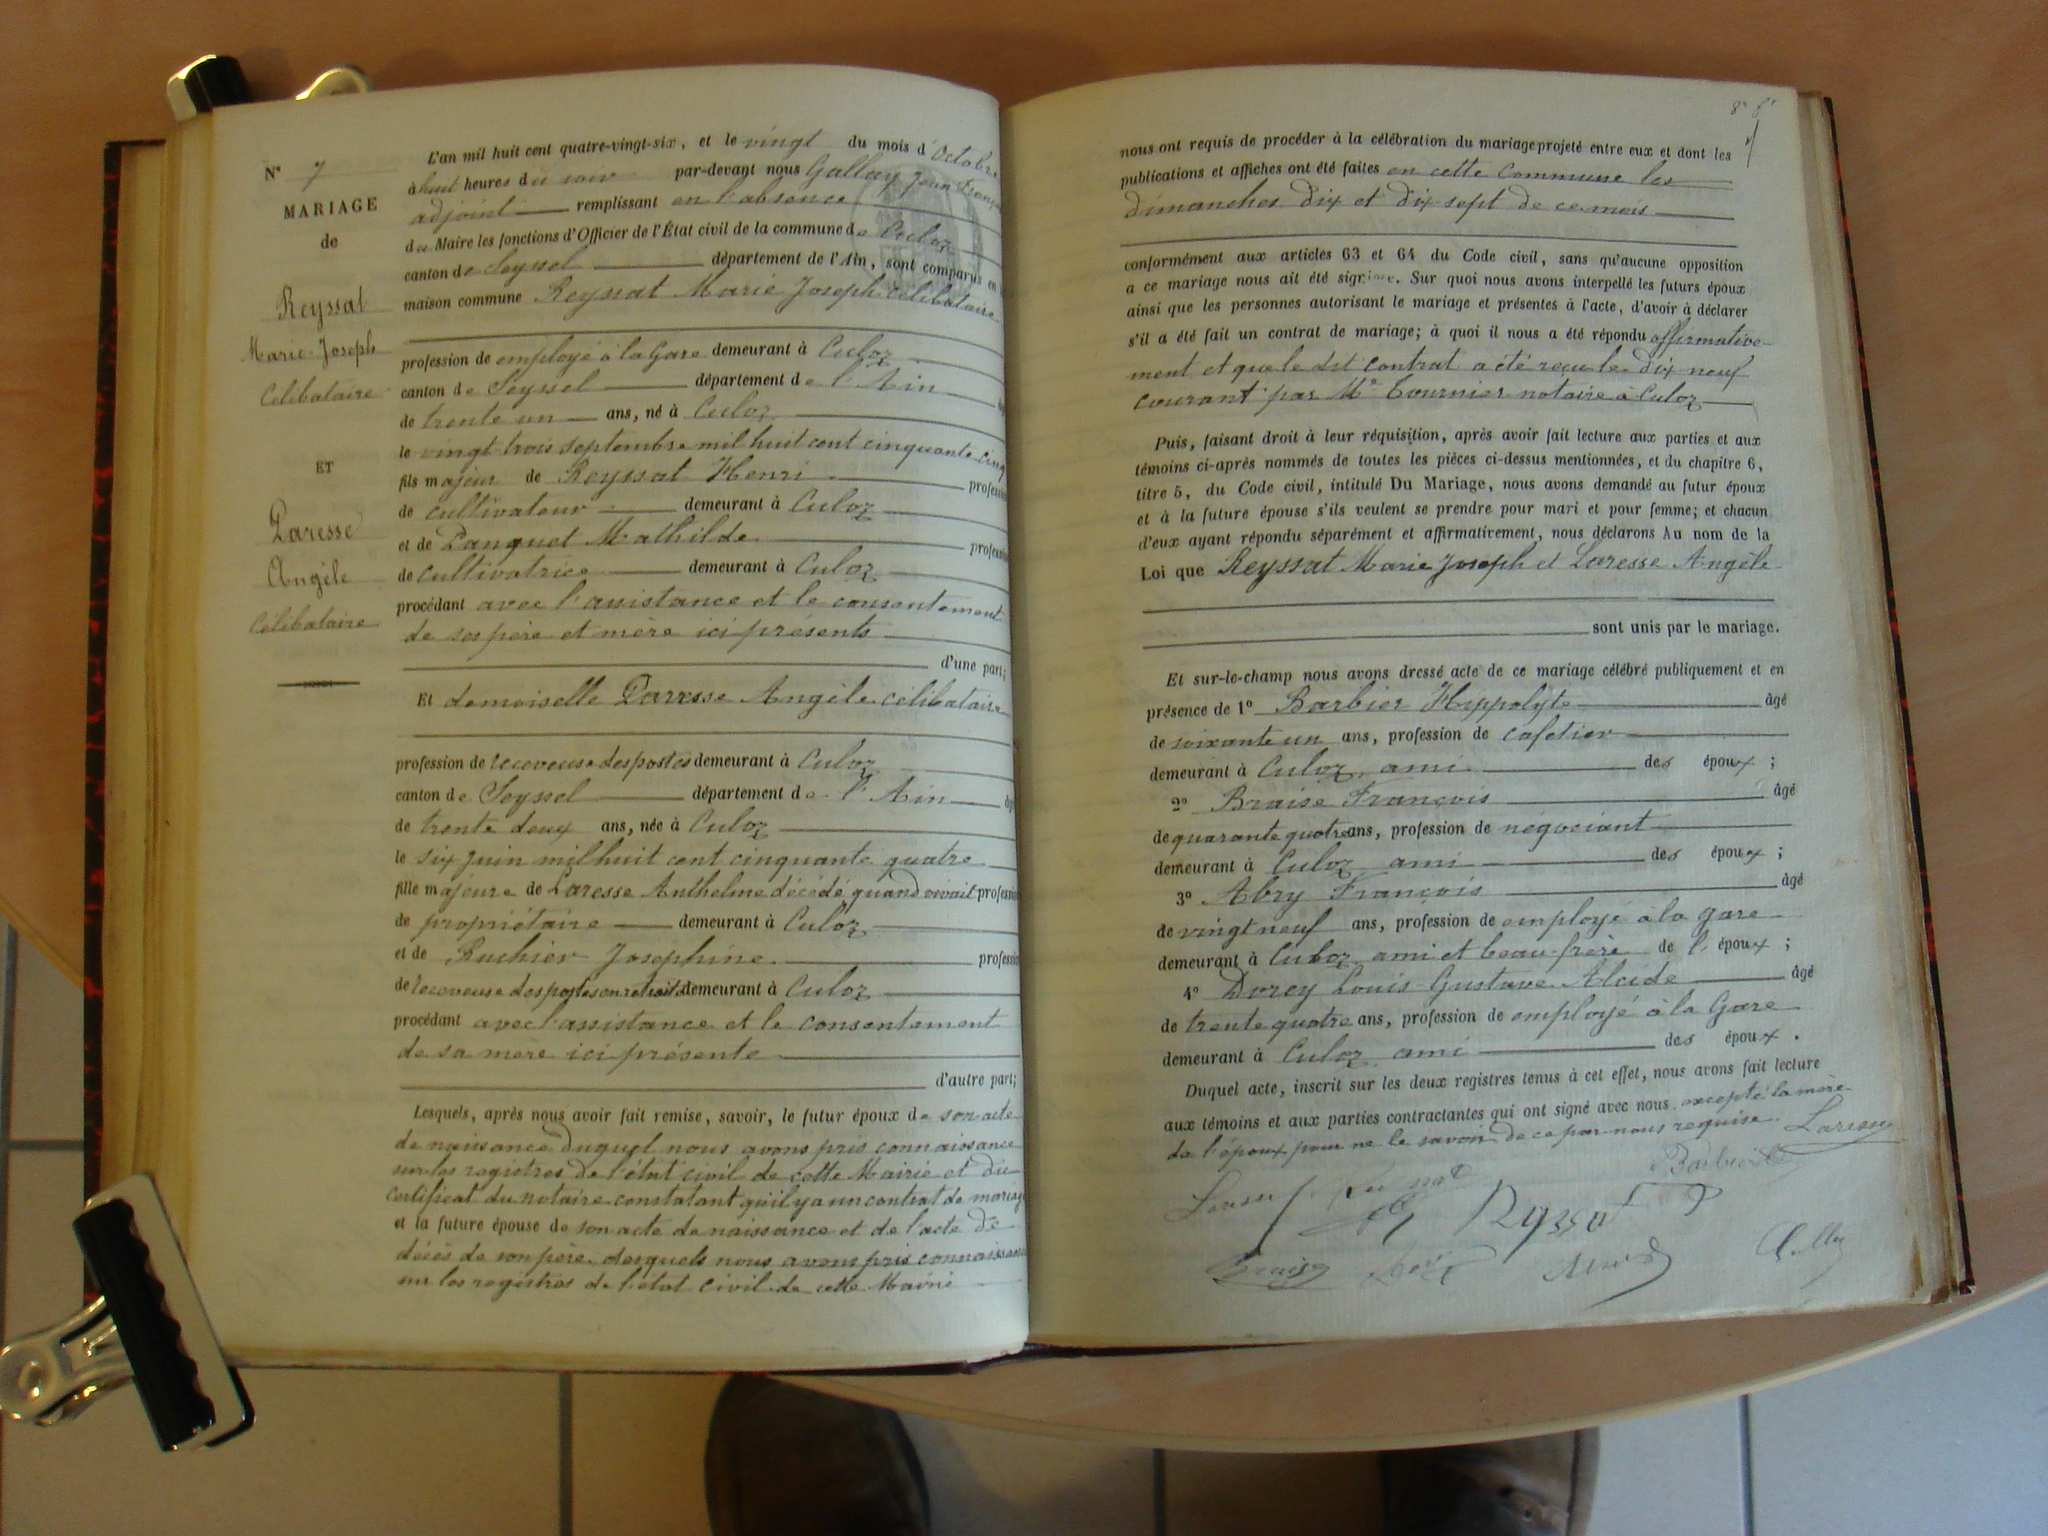 N° 7
MARIAGE
de
Reyssat
Marie Joseph
Célibataire
ET
Laresse
Angèle
Célibataire
L'an mil huit cent quatre-vingt-six, et le vingt du mois d'Octobre
à huit heures du soir par-devant nous Gallay Jean
adjoint remplissant en l'absence
du Maire les fonctions d'Officier de l'État civil de la commune de Culoz
canton de Seyssel département de l'Ain, sont comparus en
maison commune Reyssat Marie Joseph célibataire
profession de employé à la Gare demeurant à Culoz
canton de Seyssel département de l'Ain
de trente un ans, né à Culoz
le vingt trois septembre mil huit cent cinquante cinq
fils majeur de Reyssat Henri profession
de cultivateur demeurant à Culoz
et de Panquet Mathilde profession
de cultivatrice demeurant à Culoz
procédant avec l'assistance et le consentement
de ses père et mère ici présents
d'une part;
Et demoiselle Laresse Angèle célibataire
profession de receveuse des postes demeurant à Culoz
canton de Seyssel département de l'Ain
de trente deux ans, née à Culoz
le six juin mil huit cent cinquante quatre
fille majeure de Laresse Anthelme décédé quand vivait profession
de propriétaire demeurant à Culoz
et de Ruchier Josephine profession
de receveuse des postes en retraite demeurant à Culoz
procédant avec l'assistance et le consentement
de sa mère ici présente
d'autre part;
Lesquels, après nous avoir fait remise, savoir, le futur époux de son acte
de naissance duquel nous avons pris connaissance
sur les registres de l'état civil de cette Mairie et du
certificat du notaire constatant qu'il y a un contrat de mariage
et la future épouse de son acte de naissance et de l'acte de
décès de son père desquels nous avons pris connaissance
sur les registres de l'état civil de cette Mairie
nous ont requis de procéder à la célébration du mariage projeté entre eux et dont les
publications et affiches ont été faites en cette Commune les
dimanches dix et dix sept de ce mois
conformément aux articles 63 et 64 du Code civil, sans qu'aucune opposition
a ce mariage nous ait été signifiée. Sur quoi nous avons interpellé les futurs époux
ainsi que les personnes autorisant le mariage et présentes à l'acte, d'avoir à déclarer
s'il a été fait un contrat de mariage; à quoi il nous a été répondu affirmative-
ment et que le dit contrat a été reçu le dix neuf
courant par Me Tournier notaire à Culoz
Puis, faisant droit à leur réquisition, après avoir fait lecture aux parties et aux
témoins ci-après nommés de toutes les pièces ci-dessus mentionnées, et du chapitre 6,
titre 5, du Code civil, intitulé Du Mariage, nous avons demandé au futur époux
et à la future épouse s'ils veulent se prendre pour mari et pour femme; et chacun
d'eux ayant répondu séparément et affirmativement, nous déclarons Au nom de la
Loi que Reyssat Marie Joseph et Laresse Angèle
sont unis par le mariage.
Et sur-le-champ nous avons dressé acte de ce mariage célébré publiquement et en
présence de 1° Barbier Hippolyte âgé
de soixante un ans, profession de cafetier
demeurant à Culoz ami des époux;
2° Braise François âgé
de quarante quatre ans, profession de négociant
demeurant à Culoz ami des époux;
3° Abry François âgé
de vingt neuf ans, profession de employé à la gare
demeurant à Culoz ami et beau-frère de l'époux;
4° Dorey Louis Gustave Alcide âgé
de trente quatre ans, profession de employé à la Gare
demeurant à Culoz ami des époux.
Duquel acte, inscrit sur les deux registres tenus à cet effet, nous avons fait lecture
aux témoins et aux parties contractantes qui ont signé avec nous excepté la mère
de l'époux pour ne le savoir de ce par nous requise.